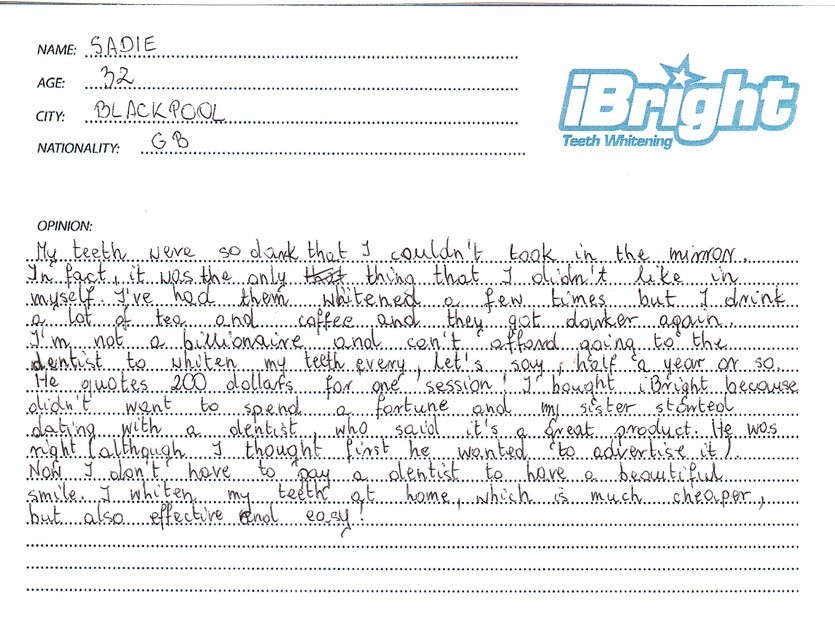 NAME: SADIE
AGE: 32
CITY: BLACKPOOL
NATIONALITY: GB
iBright
Teeth Whitening
OPINION:
My teeth were so dark that I couldn't took in the mirror.
In fact, it was the only thing that I didn't like in
myself. I've had them whitened a few times but I drink
a lot of tea and coffee and they got darker again.
I'm not a billionaire and can't afford going to the
dentist to whiten my teeth every, let's say, half a year or so.
He quotes 200 dollars for one session! I bought iBright because
didn't want to spend a fortune and my sister started
dating with a dentist who said it's a great product. He was
right (although I thought first he wanted to advertise it).
Now I don't have to pay a dentist to have a beautiful
smile. I whiten my teeth at home, which is much cheaper,
but also effective and easy!